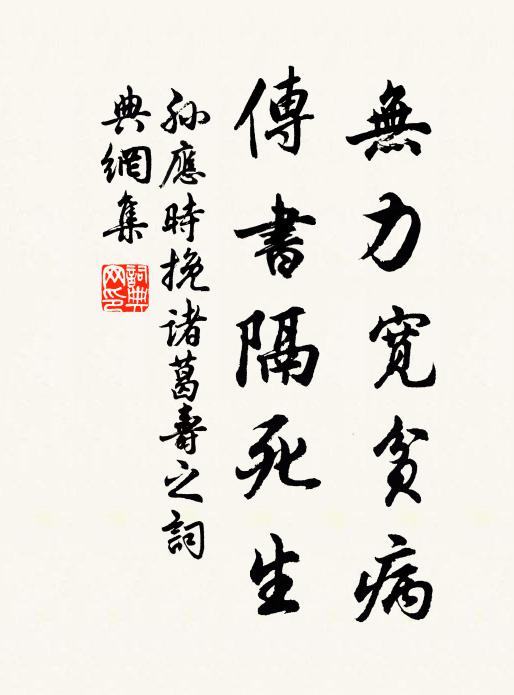 無力寬貧病
傳書隔死生
孫應時挽諸葛壽之詞
典網集
詞典网印